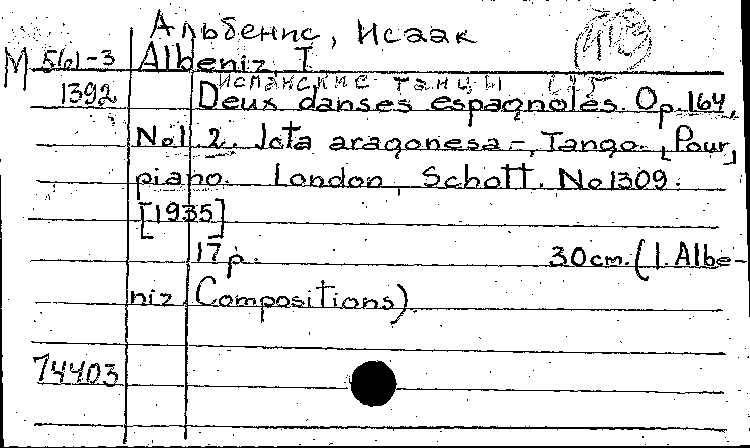 Альбенис, Исаак
М 561-3 Albeniz I
Испанские танцы
1392 Deux danses espagnoles. Op.164,
No1.2. Jota aragonesa-, Tango. [Pour]
piano. London, Schott. No1309.
[1935]
17p. 30cm. (I. Albe-
niz. Compositions)
74403